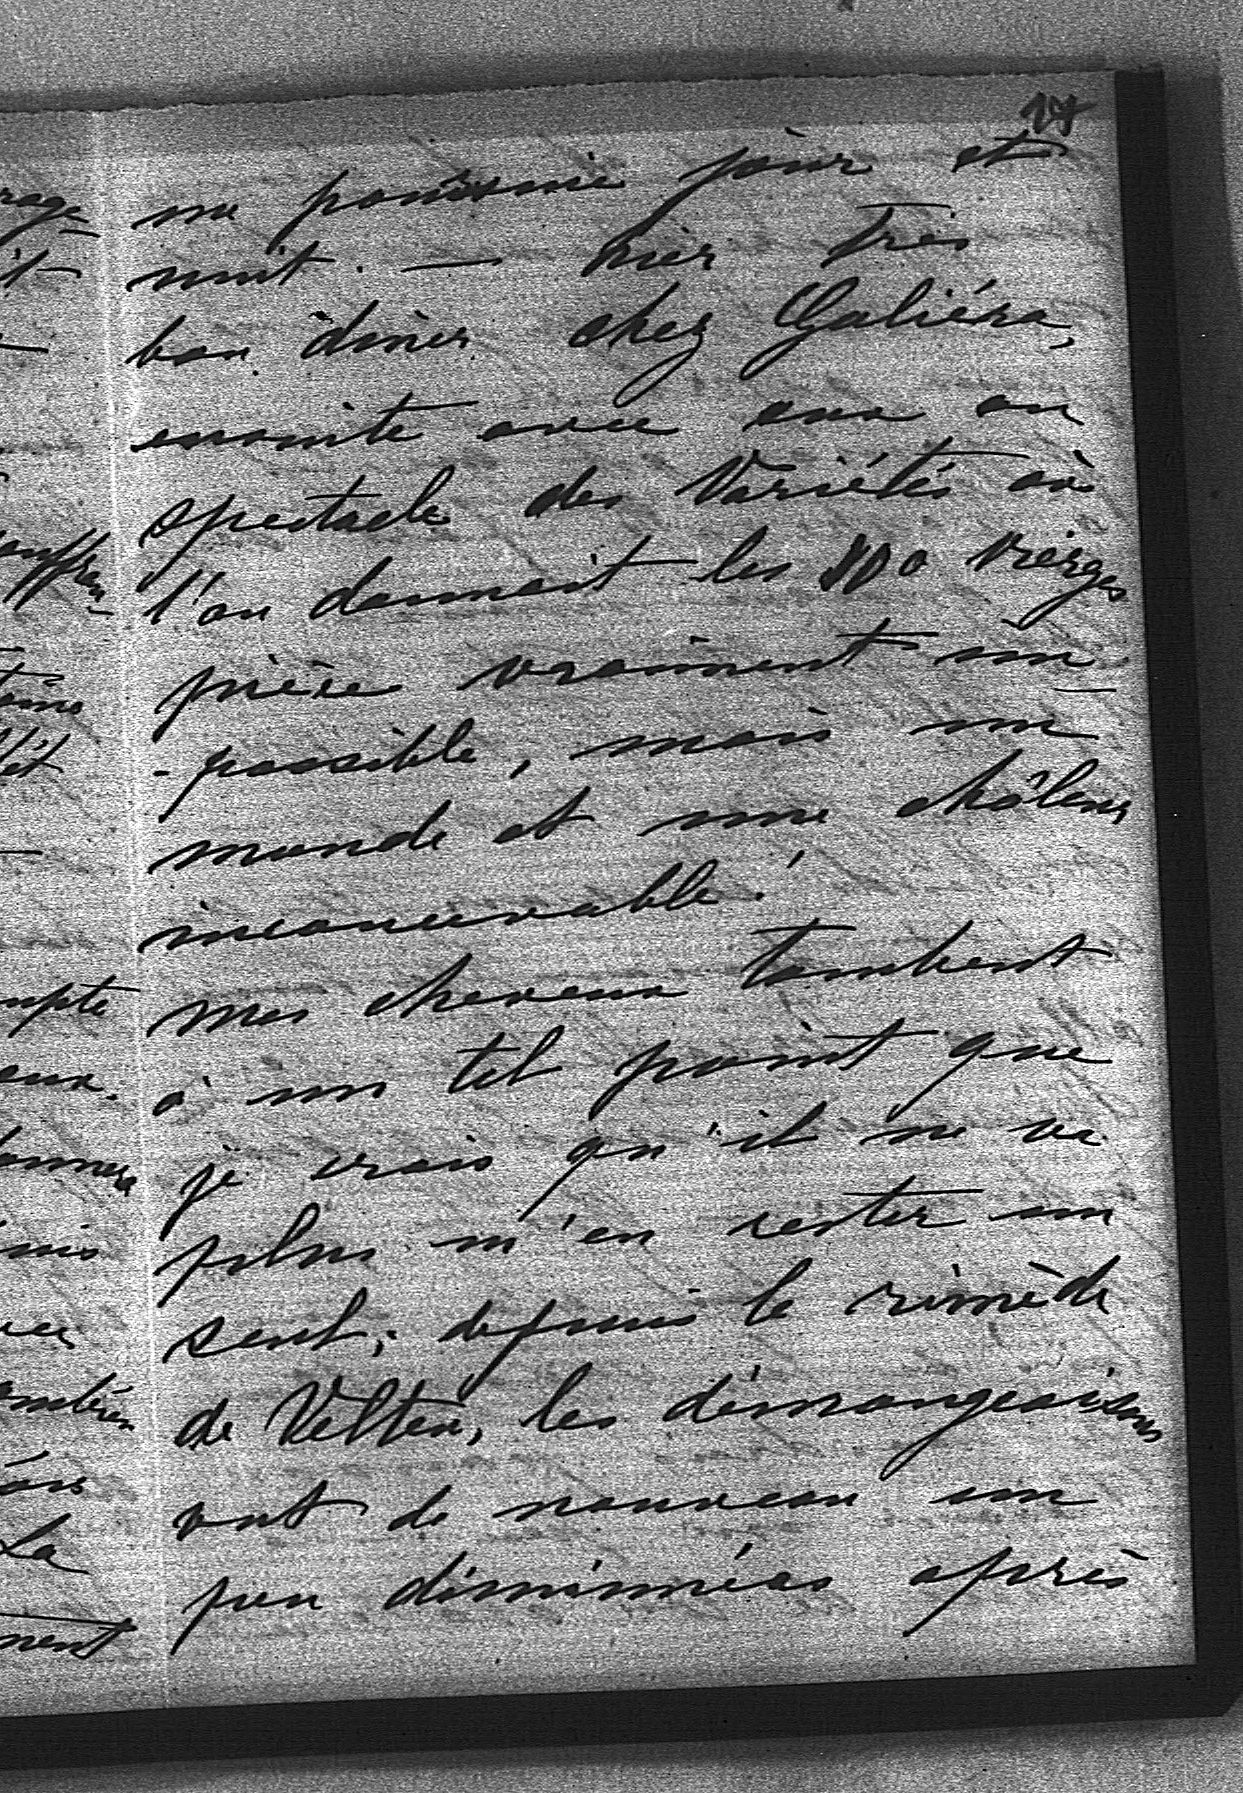 27
me poursuie jour et
nuit. — hier très
bon diner chez Galiéra,
ensuite avec eux au
spectacle des Variétés où
l'on donnait les 100 vierges
pièce vraiment im
-possible, mais un
monde et une châleur
inconcevable!
mes cheveux tombent
à un tel point que
je crois qu'il ne va
plus m'en rester un
seul; depuis le rémède
de Velten, les démangeaisons
ont de nouveau un
peu diminuées après